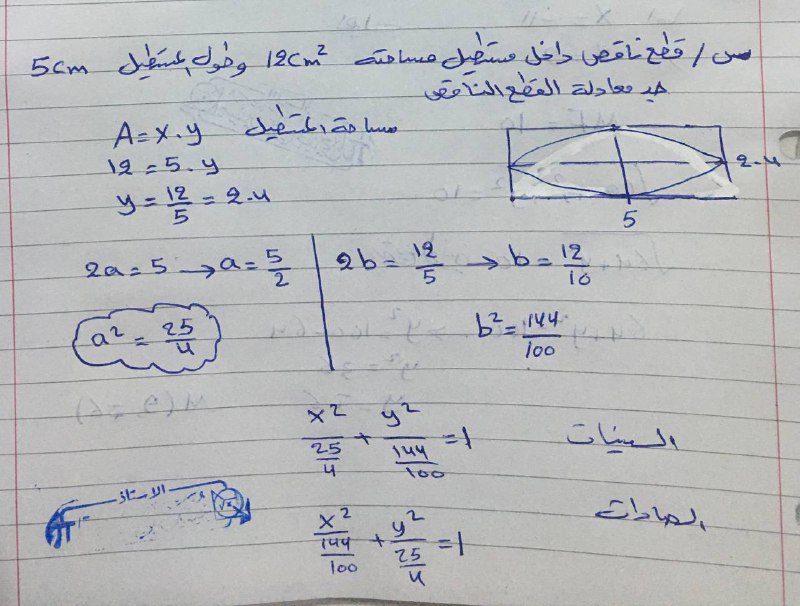 س/ قطع ناقص داخل مستطيل مساحته 12cm² وطول المستطيل 5cm
جد معادلة القطع الناقص
A = x . y مساحة المستطيل
12 = 5 . y
y = 12/5 = 2.4
2.4
5
2a = 5 → a = 5/2
2b = 12/5 → b = 12/10
a² = 25/4
b² = 144/100
x²/(25/4) + y²/(144/100) = 1 السينات
x²/(144/100) + y²/(25/4) = 1 الصادات
الاستاذ